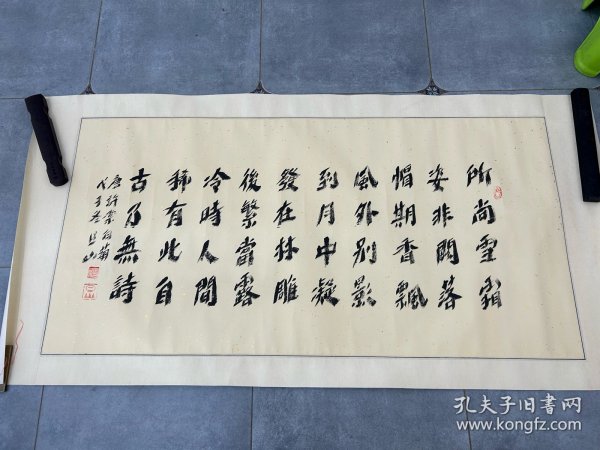 所尚雪霜
姿非關落
帽期香飄
風外別影
到月中凝
發在林雕
後繁當露
冷時人間
稀有此自
古乃無詩
唐許棠白菊
孔夫子旧書网
www.kongfz.com